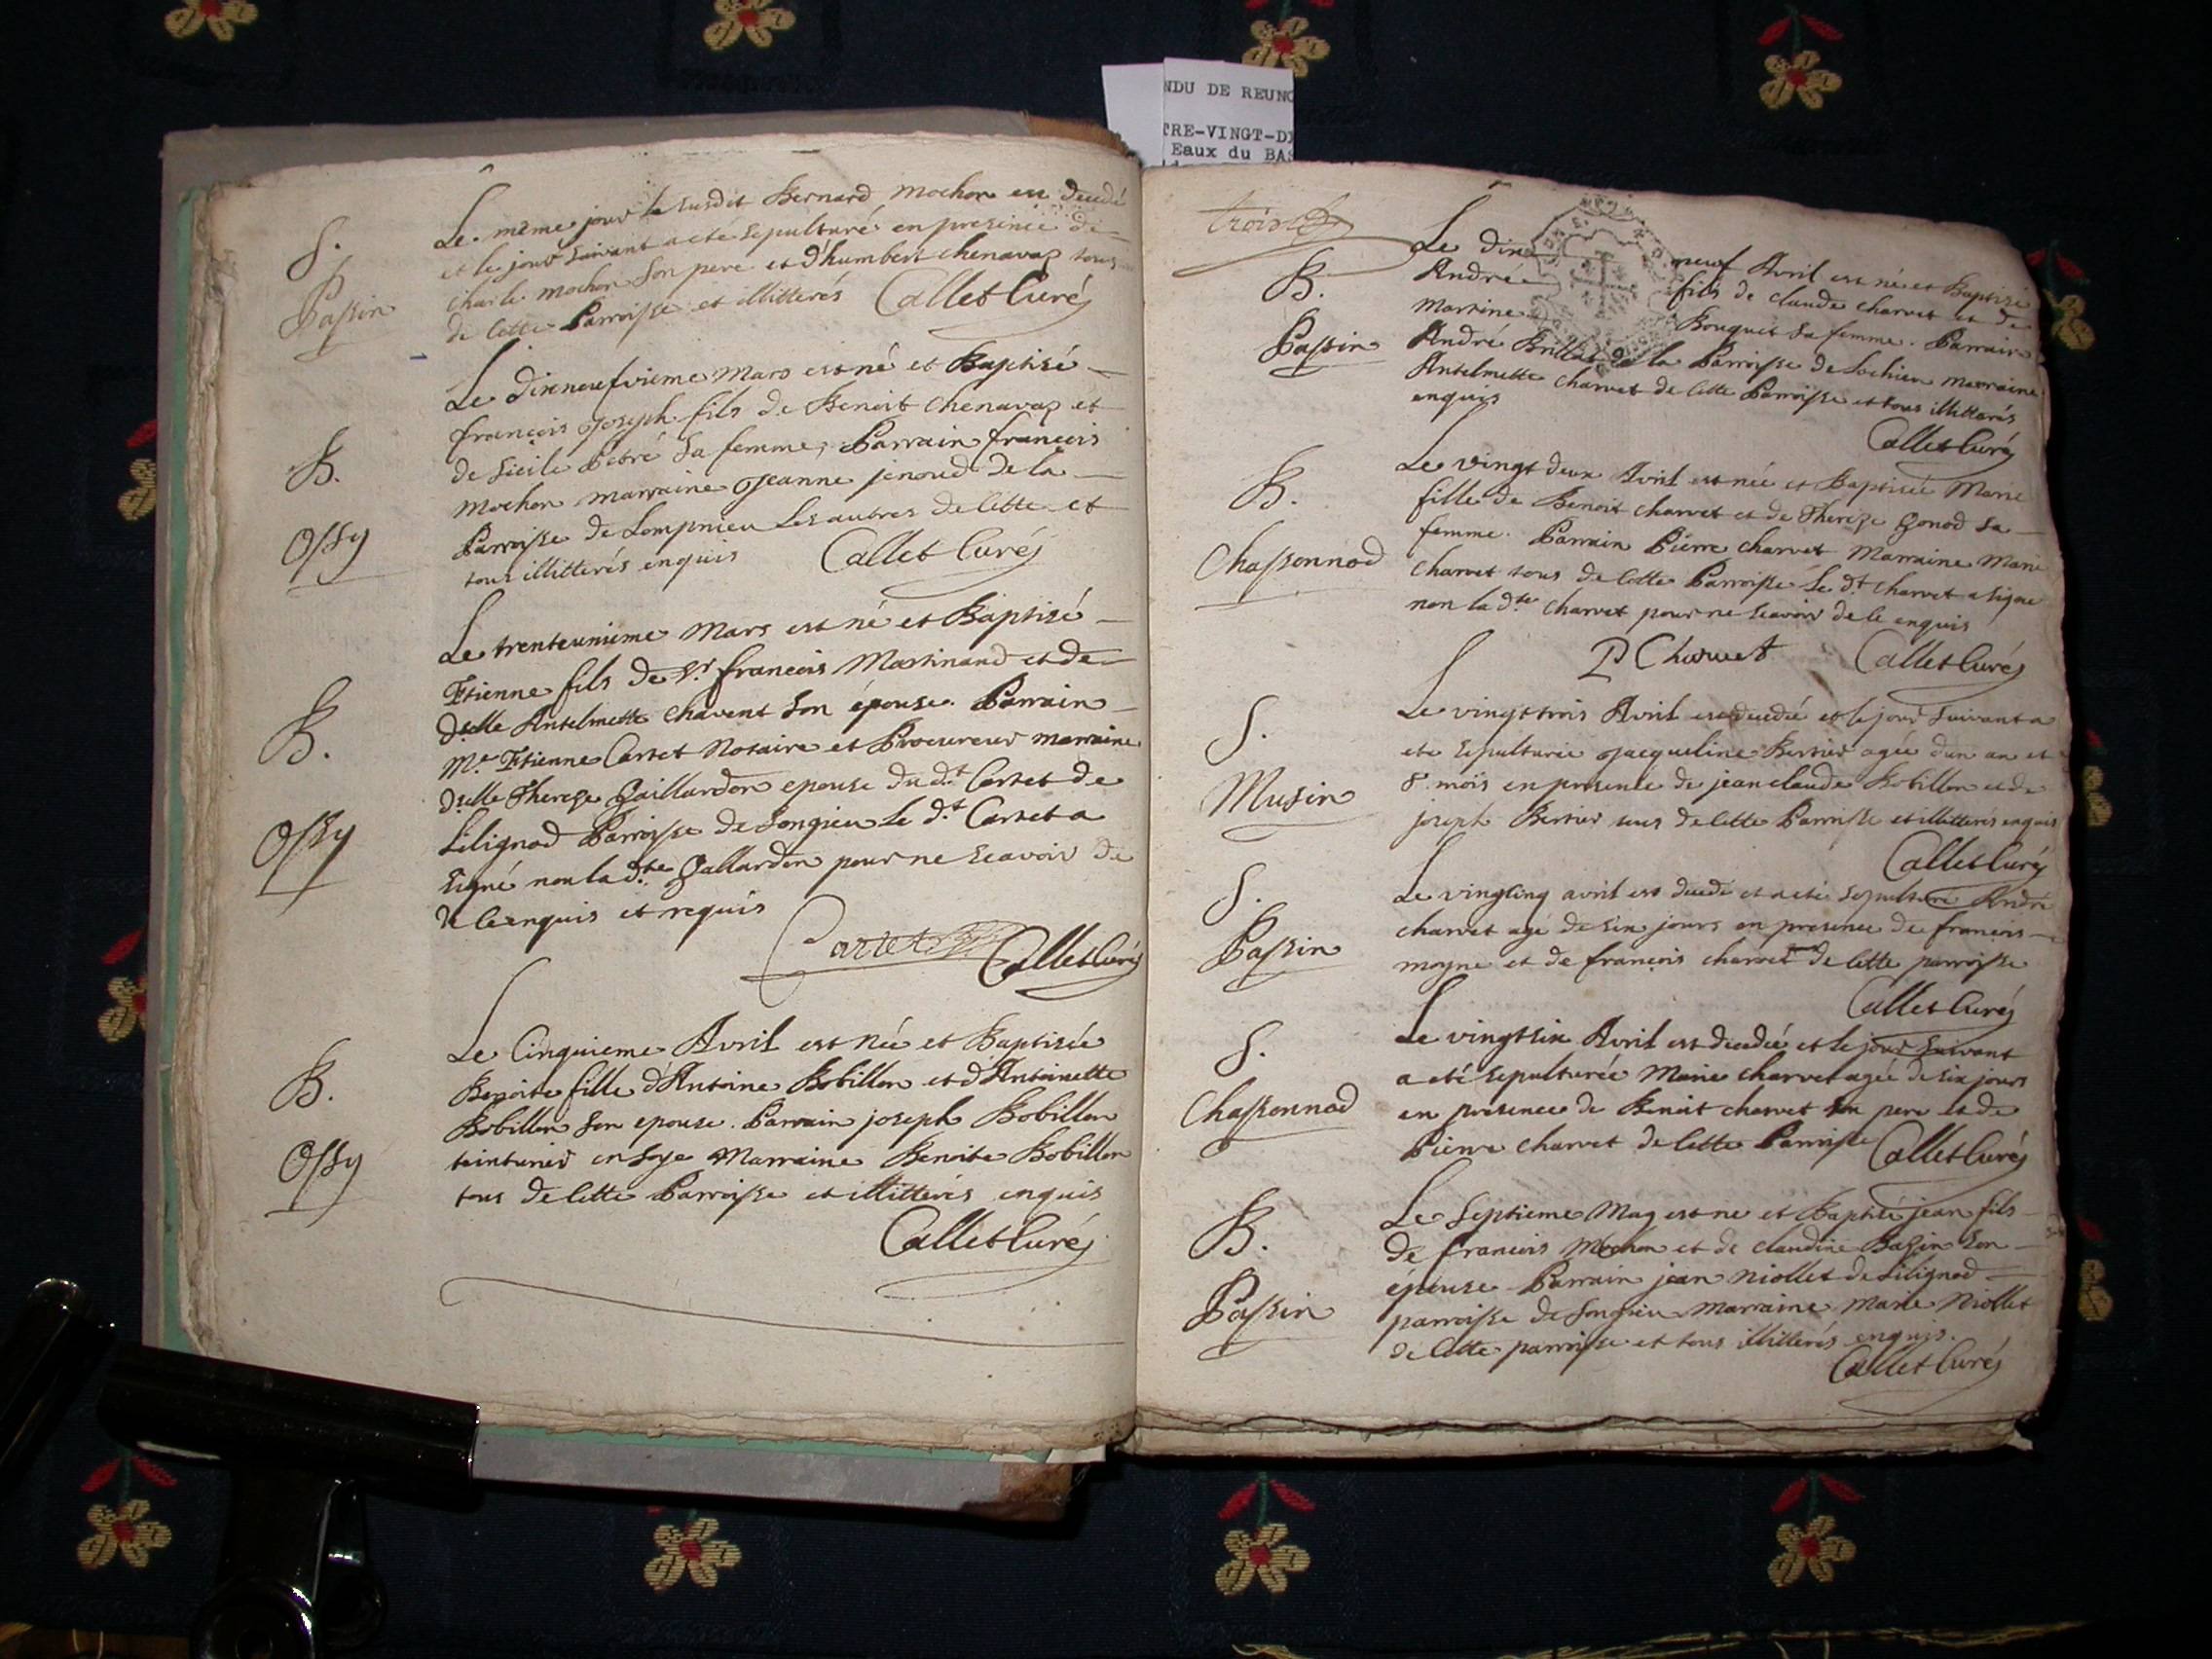 NDU DE REUNC
TRE-VINGT-DI
Eaux du BAS
S.
Passin
Le même jour le susdit Bernard mochon est decedé
et le jour suivant a eté sepulturé en presence de
charle mochon son pere et d'humbert chenavaz tous
de cette Parroisse et illitterés Callet Curé
B.
Ossy
Le dixneufvieme Mars est né et Baptisé
françois joseph fils de Benoit chenavaz et
de sicile Betré sa femme, Parrain françois
mochon marraine jeanne jenoud de la
Parroisse de Lompnieu les autres de cette et
tous illitterés enquis Callet Curé
B.
Ossy
Le trenteunieme Mars est né et Baptisé
Etienne fils de Sr. françois Martinand et de
dselle Antelmette chavent son épouse. Parrain
Me. Etienne Cartet Notaire et Procureur marraine
dselle Thereze Gaillardon epouse du dt. Cartet de
Silignod Parroisse de Songieu le dt. Cartet a
signé non la dte. Gallardon pour ne scavoir de
de ce enquis et requis
Cartet Callet Curé
B.
Ossy
Le Cinquieme Avril est née et Baptisée
Benoite fille d'Antoine Bobillon et d'Antoinette
Bobillon son epouse. Parrain joseph Bobillon
teinturier en soye Marraine Benoite Bobillon
tous de cette Parroisse et illitterés enquis
Callet Curé
trois
B.
Passin
Le dix neuf Avril est né et Baptisé
André fils de claude charvet et de
Martine Bouquet sa femme. Parrain
André Brillat de la Parroisse de Lochieu marraine
Antelmette charvet de cette Parroisse et tous illitterés
enquis
Callet Curé
B.
Chassonnod
Le vingt deux Avril est née et Baptisée Marie
fille de Benoit charvet et de Thereze Gonod sa
femme. Parrain Pierre charvet Marraine Marie
charvet tous de cette Parroisse le dt. charvet a signé
non la dte. charvet pour ne scavoir de ce enquis
P Charvet Callet Curé
S.
Musin
Le vingt trois Avril est decedée et le jour suivant a
ete sepulturée jacqueline Bertier agée d'un an et
8 mois en presence de jean claude Bobillon et de
joseph Bertier tous de cette Parroisse et illitterés enquis
Callet Curé
S.
Passin
Le vingt cinq avril est decedé et a eté sepulturé André
charvet agé de six jours en presence de françois
moyne et de françois charvet de cette parroisse
Callet Curé
S.
Chassonnod
Le vingt six Avril est decedée et le jour suivant
a eté sepulturée Marie charvet agée de six jours
en presence de Benoit charvet son pere et de
Pierre charvet de cette Parroisse Callet Curé
B.
Passin
Le septieme May est né et Baptisé jean fils
de francois Mochon et de claudine Bazin son
épouse Parrain jean Niollet de Silignod
parroisse de Songieu marraine marie Niollet
de cette parroisse et tous illitterés enquis.
Callet Curé